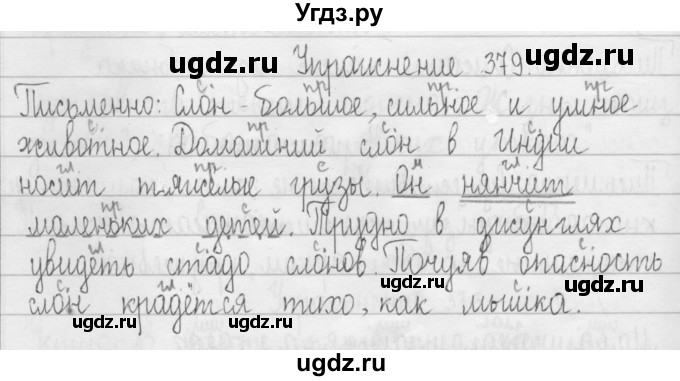 Угдз.ру
Упражнение 379.
ugdz.ru ugdz.ru
Письменно: Слон - большое, сильное и умное
животное. Домашний слон в Индии
носит тяжёлые грузы. Он нянчит
маленьких детей. Трудно в джунглях
увидеть стадо слонов. Почуяв опасность
слон крадётся тихо, как мышка.
ugdz.ru ugdz.ru
ugdz.ru